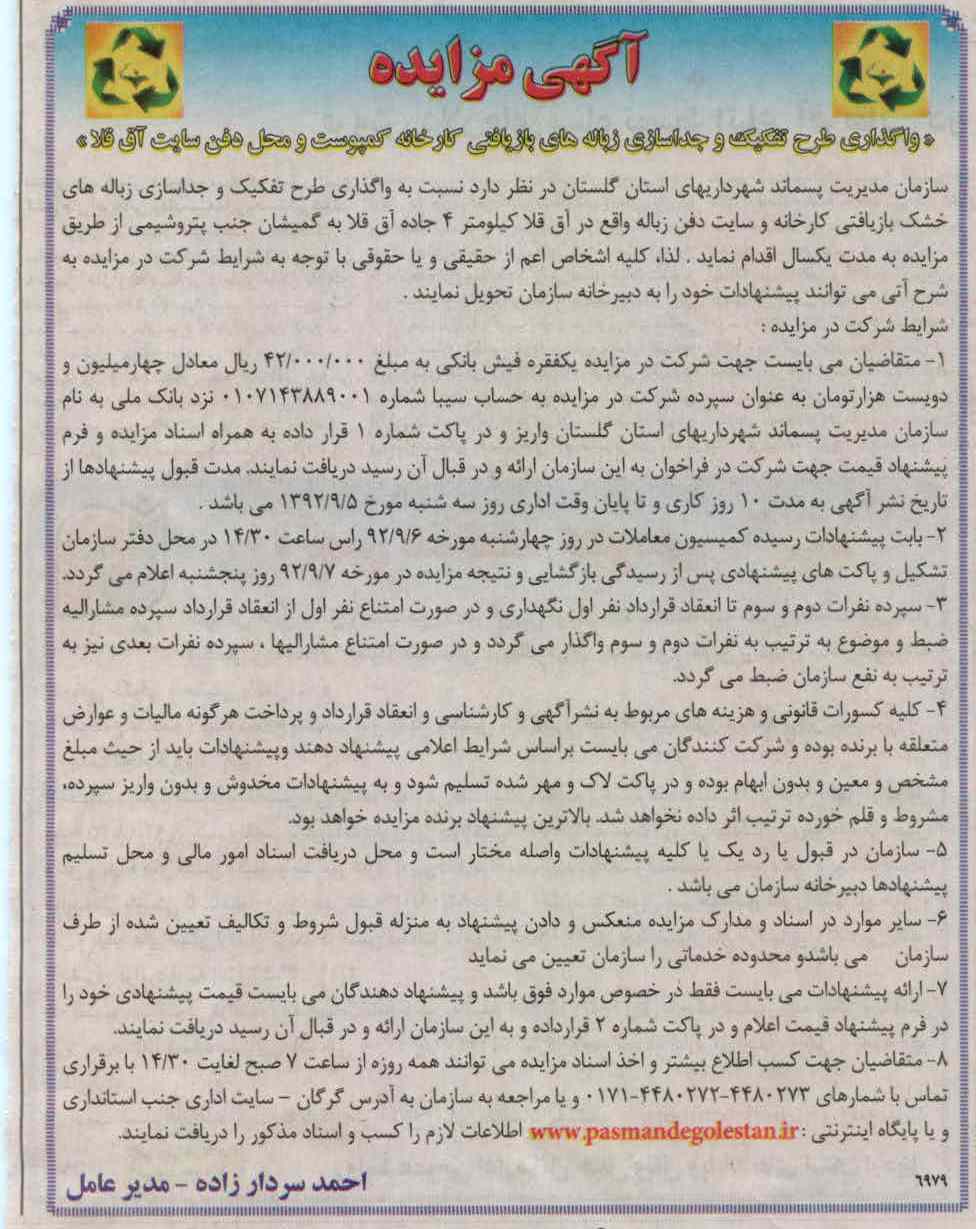 آگهی مزایده
« واگذاری طرح تفکیک و جداسازی زباله های بازیافتی کارخانه کمپوست و محل دفن سایت آق قلا »
سازمان مدیریت پسماند شهرداریهای استان گلستان در نظر دارد نسبت به واگذاری طرح تفکیک و جداسازی زباله های
خشک بازیافتی کارخانه و سایت دفن زباله واقع در آق قلا کیلومتر ۴ جاده آق قلا به گمیشان جنب پتروشیمی از طریق
مزایده به مدت یکسال اقدام نماید . لذا، کلیه اشخاص اعم از حقیقی و یا حقوقی با توجه به شرایط شرکت در مزایده به
شرح آتی می توانند پیشنهادات خود را به دبیرخانه سازمان تحویل نمایند .
شرایط شرکت در مزایده :
۱- متقاضیان می بایست جهت شرکت در مزایده یکفقره فیش بانکی به مبلغ ۴۲/۰۰۰/۰۰۰ ریال معادل چهارمیلیون و
دویست هزارتومان به عنوان سپرده شرکت در مزایده به حساب سیبا شماره ۰۱۰۷۱۴۳۸۸۹۰۰۱ نزد بانک ملی به نام
سازمان مدیریت پسماند شهرداریهای استان گلستان واریز و در پاکت شماره ۱ قرار داده به همراه اسناد مزایده و فرم
پیشنهاد قیمت جهت شرکت در فراخوان به این سازمان ارائه و در قبال آن رسید دریافت نمایند. مدت قبول پیشنهادها از
تاریخ نشر آگهی به مدت ۱۰ روز کاری و تا پایان وقت اداری روز سه شنبه مورخ ۱۳۹۲/۹/۵ می باشد .
۲- بابت پیشنهادات رسیده کمیسیون معاملات در روز چهارشنبه مورخه ۹۲/۹/۶ راس ساعت ۱۴/۳۰ در محل دفتر سازمان
تشکیل و پاکت های پیشنهادی پس از رسیدگی بازگشایی و نتیجه مزایده در مورخه ۹۲/۹/۷ روز پنجشنبه اعلام می گردد.
۳- سپرده نفرات دوم و سوم تا انعقاد قرارداد نفر اول نگهداری و در صورت امتناع نفر اول از انعقاد قرارداد سپرده مشارالیه
ضبط و موضوع به ترتیب به نفرات دوم و سوم واگذار می گردد و در صورت امتناع مشارالیها ، سپرده نفرات بعدی نیز به
ترتیب به نفع سازمان ضبط می گردد.
۴- کلیه کسورات قانونی و هزینه های مربوط به نشرآگهی و کارشناسی و انعقاد قرارداد و پرداخت هرگونه مالیات و عوارض
متعلقه با برنده بوده و شرکت کنندگان می بایست براساس شرایط اعلامی پیشنهاد دهند وپیشنهادات باید از حیث مبلغ
مشخص و معین و بدون ابهام بوده و در پاکت لاک و مهر شده تسلیم شود و به پیشنهادات مخدوش و بدون واریز سپرده،
مشروط و قلم خورده ترتیب اثر داده نخواهد شد. بالاترین پیشنهاد برنده مزایده خواهد بود.
۵- سازمان در قبول یا رد یک یا کلیه پیشنهادات واصله مختار است و محل دریافت اسناد امور مالی و محل تسلیم
پیشنهادها دبیرخانه سازمان می باشد .
۶- سایر موارد در اسناد و مدارک مزایده منعکس و دادن پیشنهاد به منزله قبول شروط و تکالیف تعیین شده از طرف
سازمان می باشدو محدوده خدماتی را سازمان تعیین می نماید
۷- ارائه پیشنهادات می بایست فقط در خصوص موارد فوق باشد و پیشنهاد دهندگان می بایست قیمت پیشنهادی خود را
در فرم پیشنهاد قیمت اعلام و در پاکت شماره ۲ قرارداده و به این سازمان ارائه و در قبال آن رسید دریافت نمایند.
۸- متقاضیان جهت کسب اطلاع بیشتر و اخذ اسناد مزایده می توانند همه روزه از ساعت ۷ صبح لغایت ۱۴/۳۰ با برقراری
تماس با شمارهای ۴۴۸۰۲۷۳-۴۴۸۰۲۷۲-۰۱۷۱ و یا مراجعه به سازمان به آدرس گرگان - سایت اداری جنب استانداری
و یا پایگاه اینترنتی : www.pasmandegolestan.ir اطلاعات لازم را کسب و اسناد مذکور را دریافت نمایند.
۶۹۷۹
احمد سردار زاده - مدیر عامل